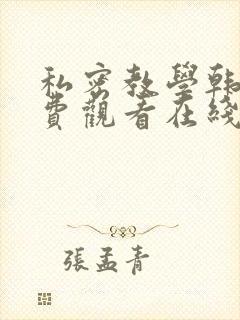 私密教學韩
費觀看在綫
張孟青